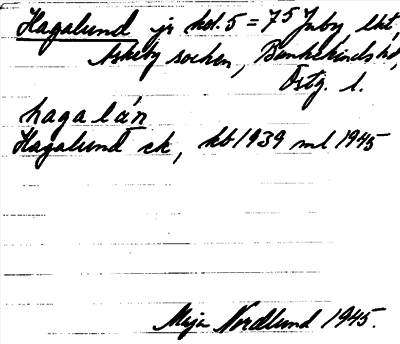 Hagalund js kol. 5 = 7⁵ Jnby lht,
Askeby socken, Bankekinds hd,
Östg. l.
hagalán
Hagalund ek, kb 1939 ml 1945
Maja Nordlund 1945.